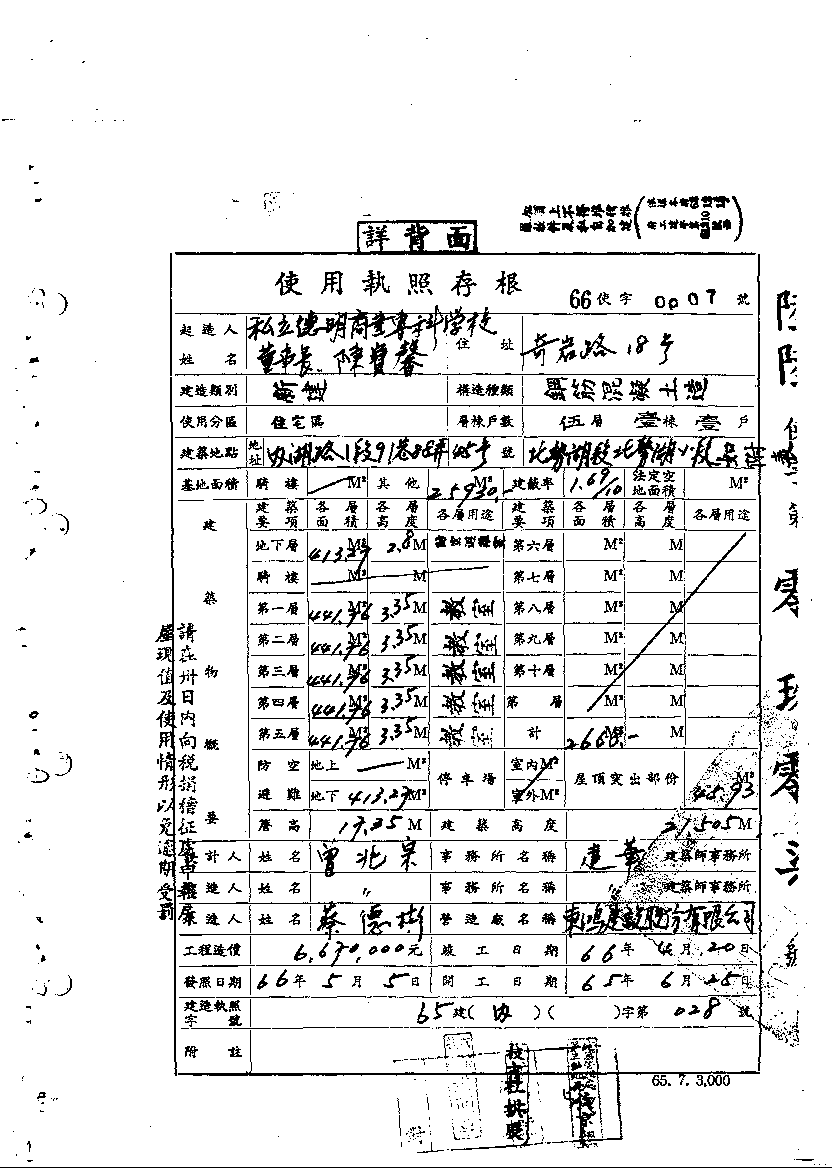 詳背面
使用執照存根
66使字 0007 號
起造人姓名 私立德明商業專科學校 董事長 陳寶馨 住址 奇岩路18号
建造類別 新建 構造種類 鋼筋混凝土造
使用分區 住宅區 層棟戶數 伍層 壹棟 壹戶
建築地點 地址 內湖路1段91巷88弄45号 號
基地面積 騎樓 M² 其他 25930.- M² 建蔽率 1.69/10 法定空地面積 M²
建築物概要
建築要項 各層面積 各層高度 各層用途 建築要項 各層面積 各層高度 各層用途
地下層 413.27 M² 2.8 M 第六層 M² M
騎樓 M² M 第七層 M² M
第一層 441.96 M² 3.35 M 教室 第八層 M² M
第二層 441.96 M² 3.35 M 教室 第九層 M² M
第三層 441.96 M² 3.35 M 教室 第十層 M² M
第四層 441.96 M² 3.35 M 教室 第 層 M² M
第五層 441.96 M² 3.35 M 教室 計 M² M
防空避難 地上 M² 停車場 室內M² 屋頂突出部份 45.93 M²
地下 413.27 M² 室外M²
簷高 17.25 M 建築高度 21.505 M
設計人 姓名 曾兆宗 事務所名稱 建華 建築師事務所
監造人 姓名 〃 事務所名稱 〃 建築師事務所
承造人 姓名 蔡德樹 營造廠名稱 東鴻建設股份有限公司
工程造價 6,670,000元 竣工日期 66年4月20日
發照日期 66年5月5日 開工日期 65年6月25日
建造執照字號 65建(內)( )字第 028 號
附註
65. 7. 3,000
請在卅日內向稅捐稽征處申報房
屋現值及使用情形以免逾期受罰